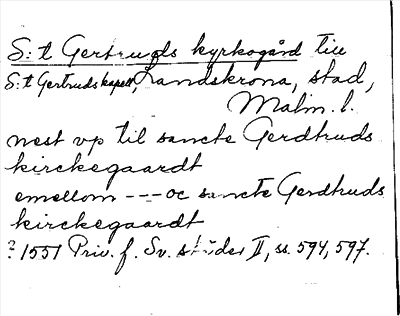 S:t Gertruds kyrkogård till
S:t Gertruds kapell, Landskrona, stad,
Malm. l.
nest vp til sancte Gerdthruds
kirckegaardt
emellom --- oc sancte Gerdhruds
kirckegaardt
? 1551 Priv. f. Sv. städer II, ss. 594, 597.